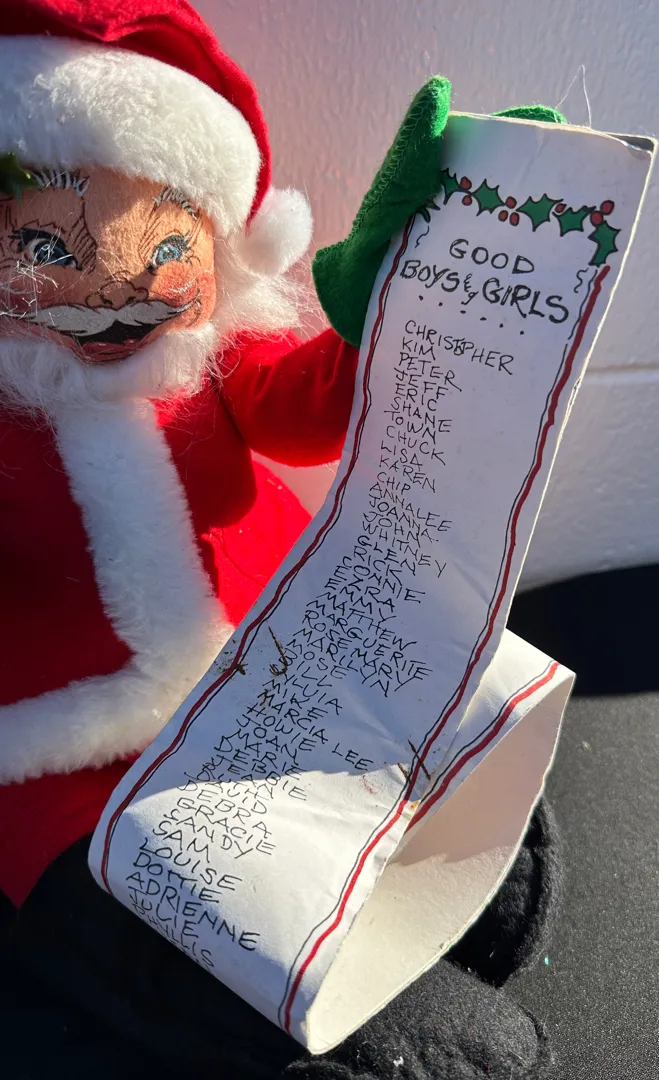 GOOD
BOYS & GIRLS
CHRISTOPHER
KIM
PETER
JEFF
ERIC
SHANE
TOWN
CHUCK
LISA
KAREN
CHIP
ANNALEE
JOANNA
JOHN
WHITNEY
GLEN
RICK
CONNIE
EZRA
EMMY
MATTHEW
MARGUERITE
ROSEMARY
MARILYN
JOSIE
JULIA
MIKE
MARCIA LEE
HOWIE
JOANE
MARIE
DEBBIE
JEANNE
DAVID
DEBRA
GRACIE
SANDY
SAM
LOUISE
DOTTIE
ADRIENNE
JULIE
PHYLLIS